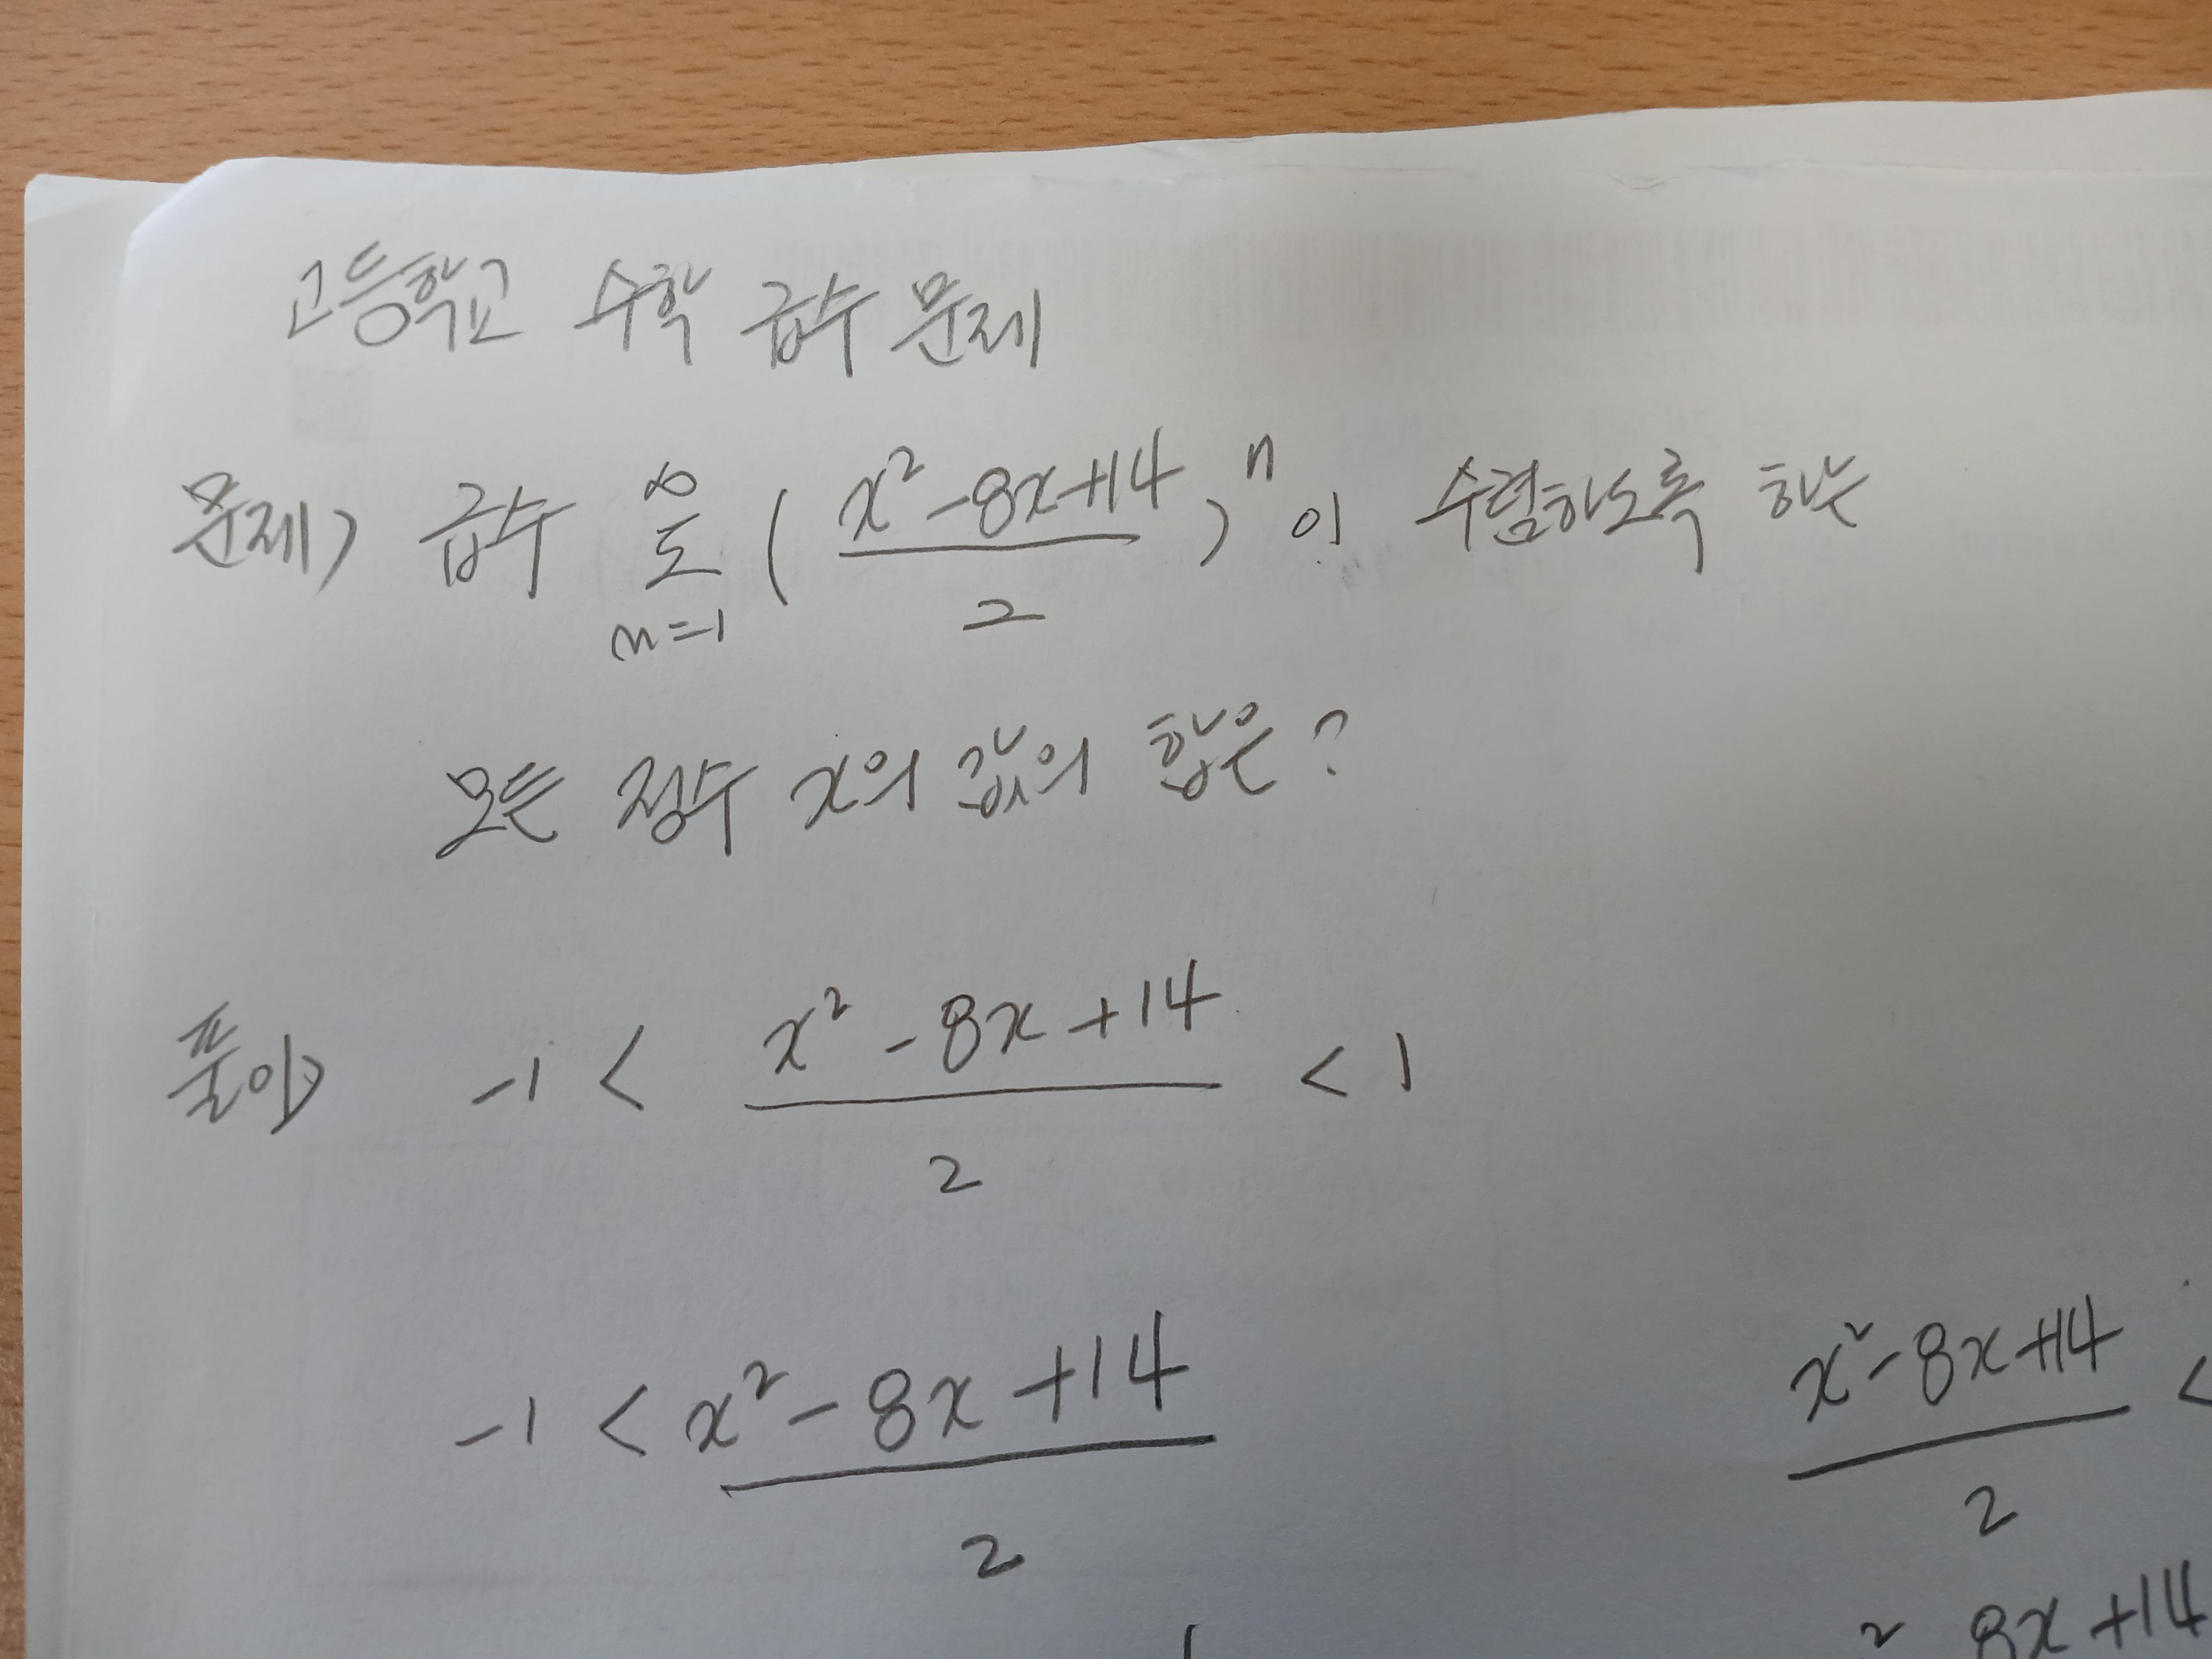 고등학교 수학 급수 문제
문제) 급수 ∞ Σ n=1 ( x² -8x+14 / 2 )ⁿ 이 수렴하도록 하는
모든 정수 x의 값의 합은?
풀이) -1 < x² - 8x + 14 / 2 < 1
-1 < x² - 8x + 14 / 2
x² - 8x + 14 / 2 <
² 8x + 14